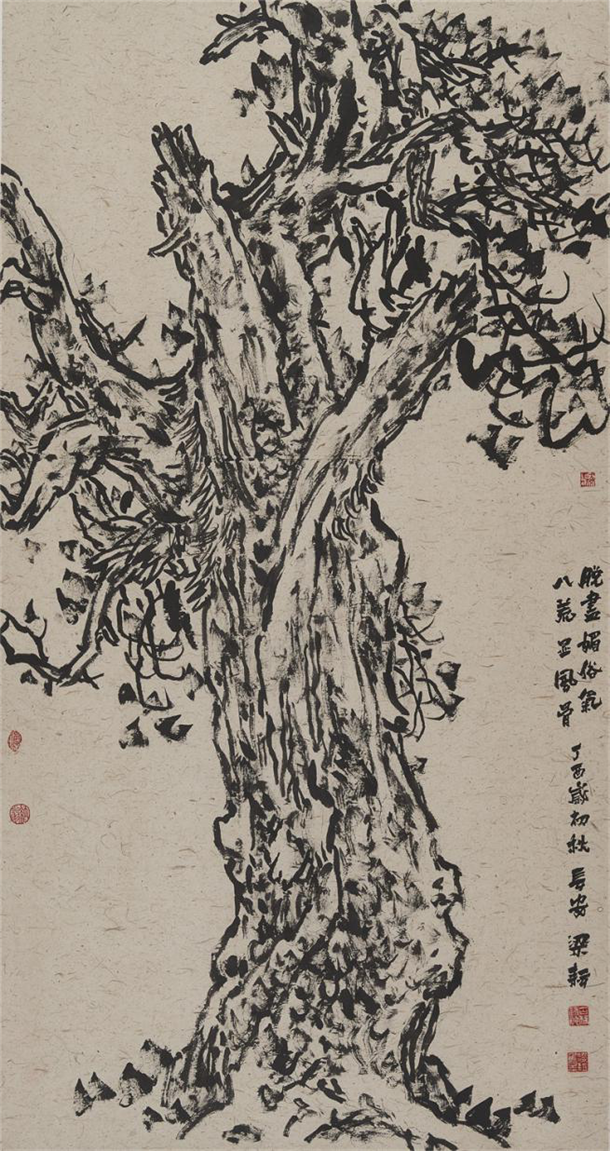 脫盡媚俗氣
八荒呈風骨 丁酉歲初秋 長安 梁耘